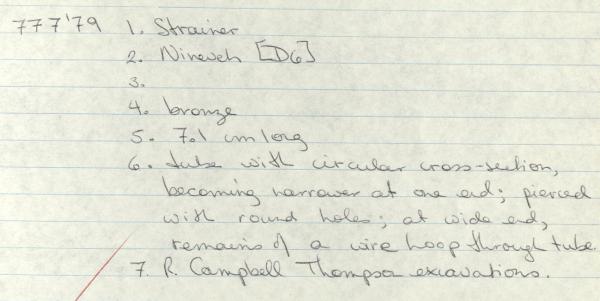 777'79 1. Strainer
2. Nineveh [D6]
3.
4. bronze
5. 7.1 cm long
6. tube with circular cross-section,
becoming narrower at one end; pierced
with round holes; at wide end,
remains of a wire hoop through tube.
7. R. Campbell Thompson excavations.